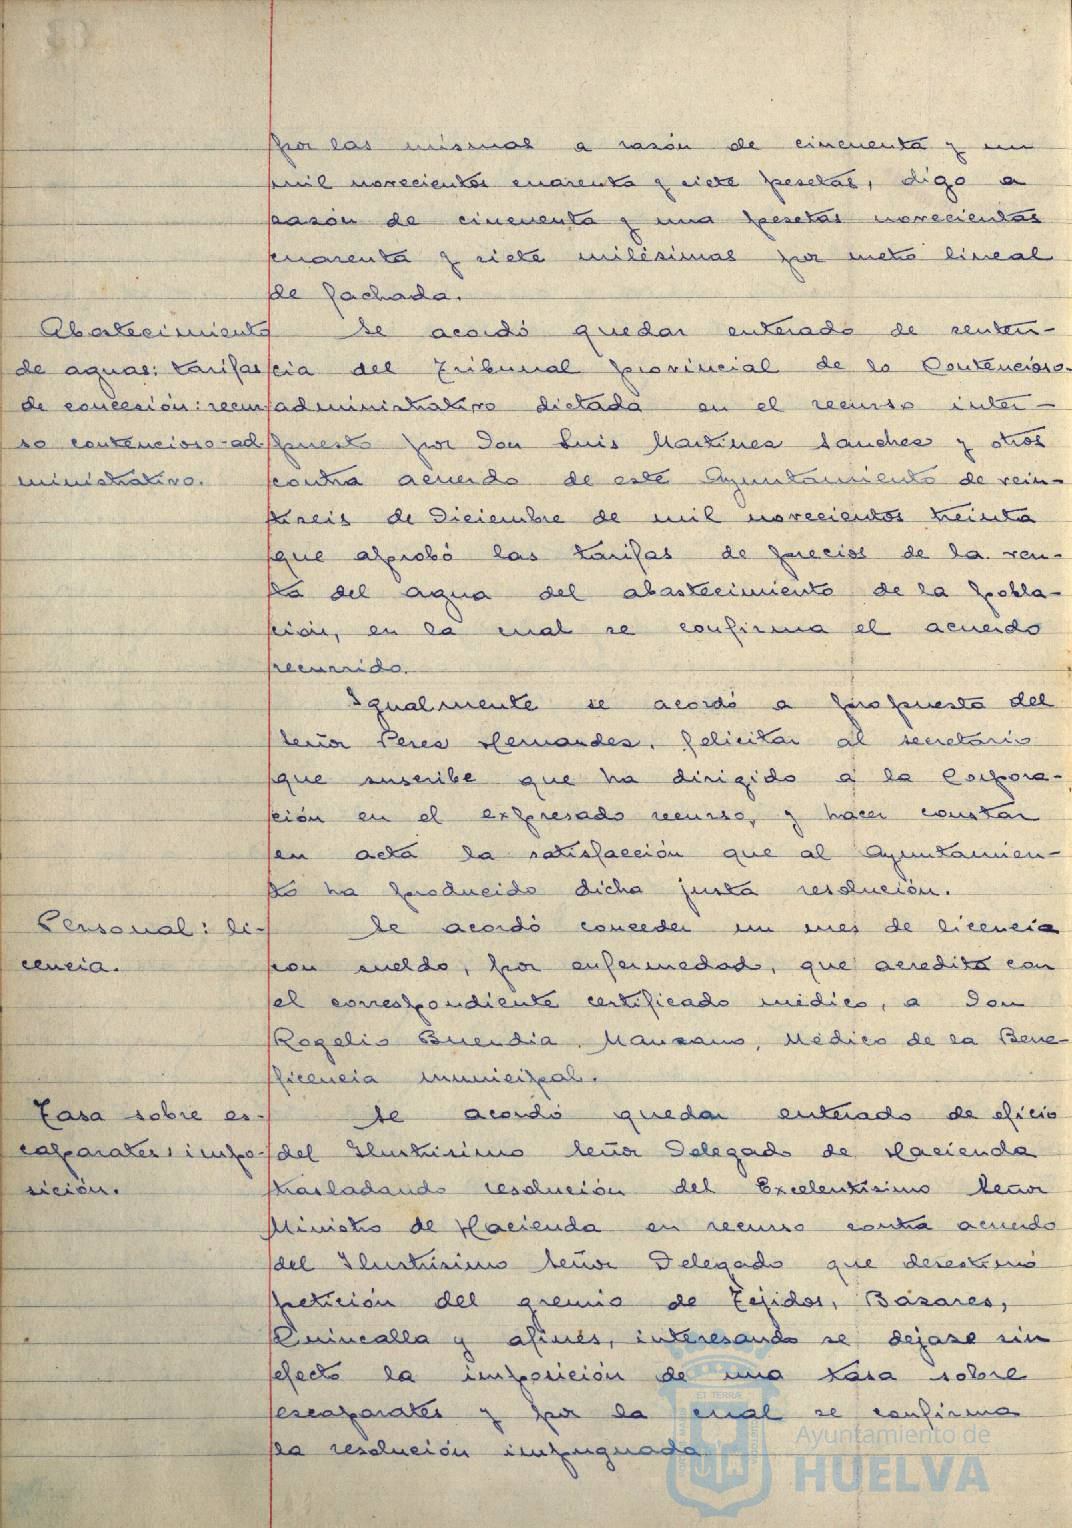 por las mismas a razón de cincuenta y un
mil novecientos cuarenta y siete pesetas, digo a
razón de cincuenta y una pesetas novecientas
cuarenta y siete milésimas por metro lineal
de fachada.
Abastecimiento
de aguas: tarifas
de concesión: recur
so contencioso-ad
ministrativo.
Se acordó quedar enterado de senten-
cia del Tribunal provincial de lo Contencioso-
administrativo dictada en el recurso inter-
puesto por Don Luis Martínez Sanchez y otros
contra acuerdo de este Ayuntamiento de vein-
tiseis de Diciembre de mil novecientos treinta
que aprobó las tarifas de precios de la ven-
ta del agua del abastecimiento de la pobla-
ción, en la cual se confirma el acuerdo
recurrido.
Igualmente se acordó a propuesta del
Señor Perez Hernandez, felicitar al secretario
que suscribe que ha dirigido a la Corpora-
ción en el expresado recurso, y hacer constar
en acta la satisfacción que al Ayuntamien-
to ha producido dicha justa resolución.
Personal: li-
cencia.
Se acordó conceder un mes de licencia
con sueldo, por enfermedad, que acredita con
el correspondiente certificado médico, a Don
Rogelio Buendia Manzano, Médico de la Bene-
ficencia municipal.
Tasa sobre es-
caparates: impo-
sición.
Se acordó quedar enterado de oficio
del Ilustrisimo Señor Delegado de Hacienda
trasladando resolución del Excelentísimo Señor
Ministro de Hacienda en recurso contra acuerdo
del Ilustrisimo Señor Delegado que desestimó
petición del gremio de Tejidos, Bazares,
Quincalla y afines, interesando se dejase sin
efecto la imposición de una tasa sobre
escaparates y por la cual se confirma
la resolución impugnada
Ayuntamiento de
HUELVA